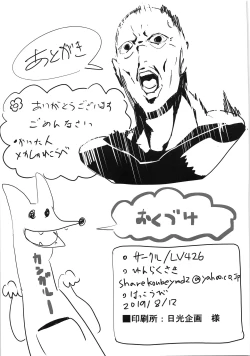 あとがき
ありがとうございます
ごめんなさい
・かいた人
メカしゃれこうべ
カンガルー
おくづけ
○サークル/LV426
○れんらくさき
sharekoubeymdz@yahoo.co.jp
○はっこうび
2019/8/12
■印刷所：日光企画 様